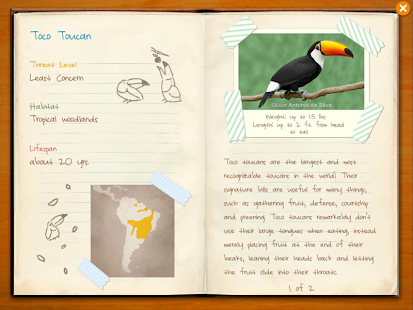 Toco Toucan
Threat Level
Least Concern
Habitat
Tropical woodlands
Lifespan
about 20 yrs.
©Luiz Antonio da Silva
Weight: up to 1.5 lbs
Length: up to 2 ft. from head
to tail
Toco toucans are the largest and most
recognizable toucans in the world! Their
signature bills are useful for many things,
such as gathering fruit, defense, courtship
and preening. Toco toucans remarkably don't
use their large tongues when eating, instead
merely placing fruit at the end of their
beaks, leaning their heads back and letting
the fruit slide into their throats.
1 of 2